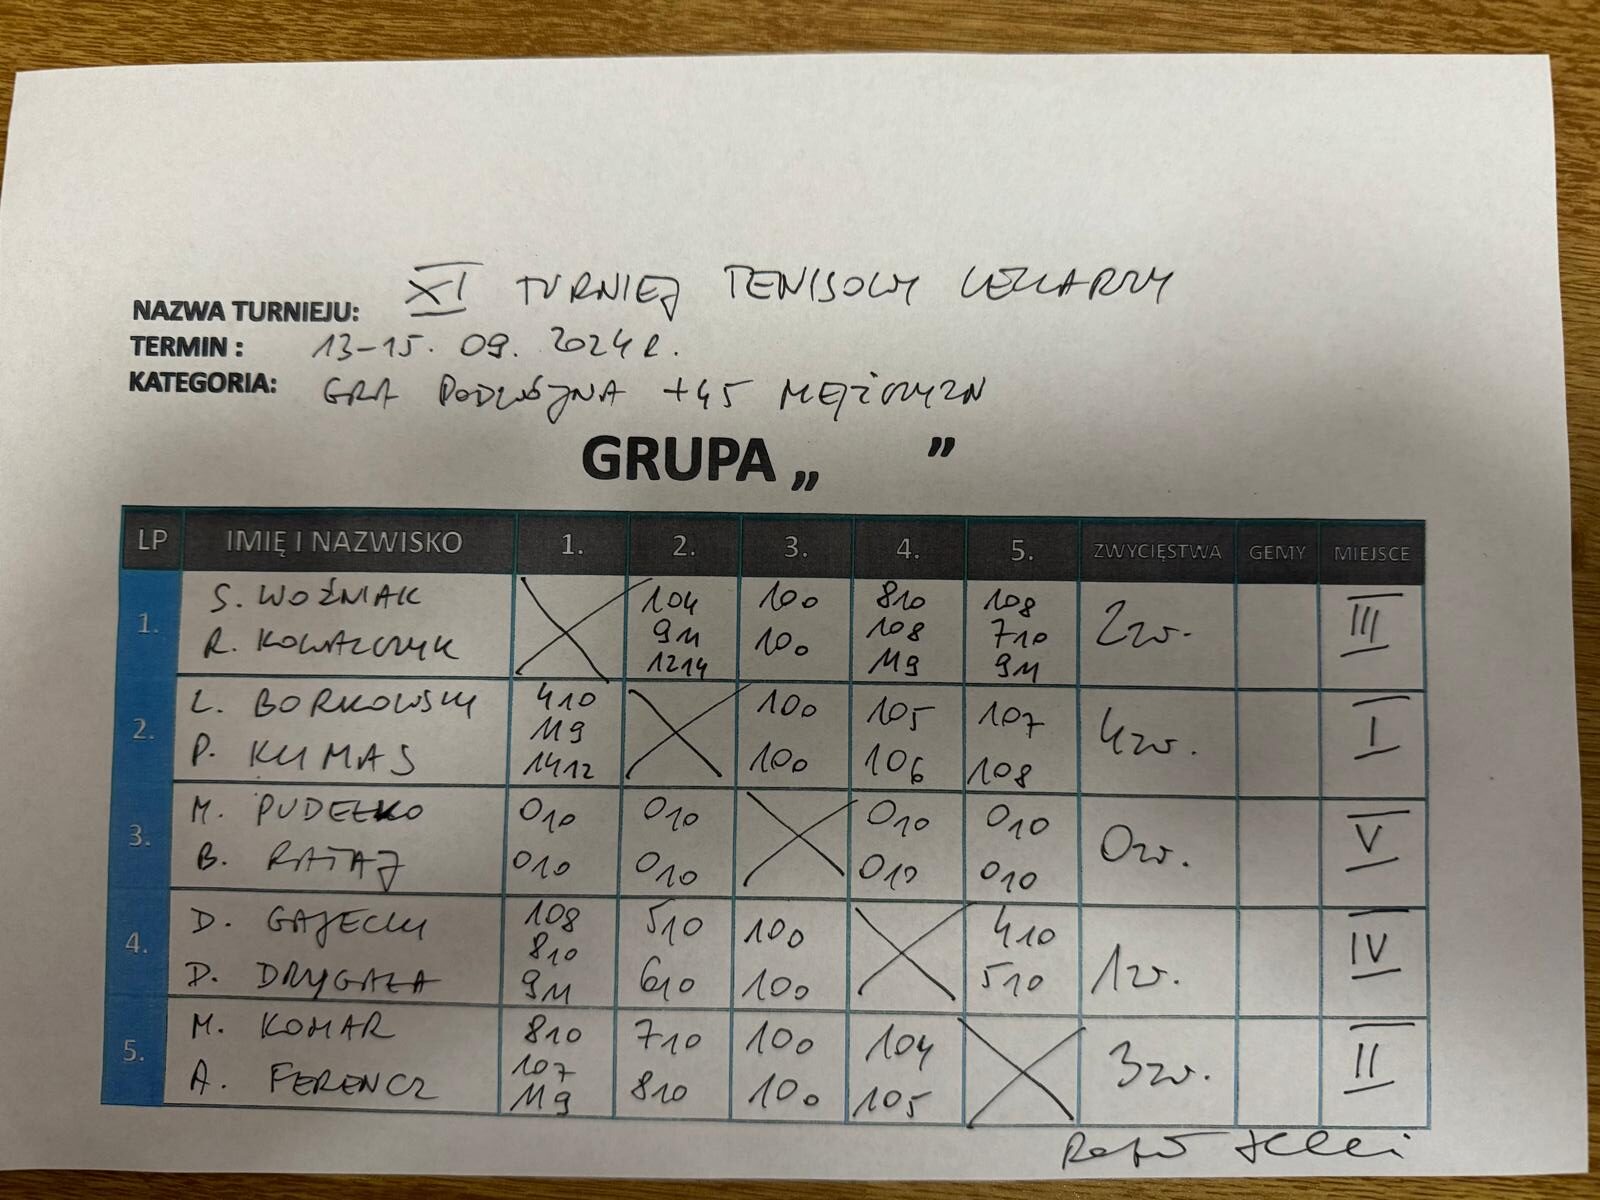 NAZWA TURNIEJU: XI TURNIEJ TENISOWY LEKARZY
TERMIN : 13-15. 09. 2024 R.
KATEGORIA: GRA PODWÓJNA +45 MĘŻCZYZN
GRUPA „ ”
LP IMIĘ I NAZWISKO 1. 2. 3. 4. 5. ZWYCIĘSTWA GEMY MIEJSCE
1. S. WOŹNIAK R. KOWALCZYK 104 911 1214 100 100 810 108 119 108 710 911 2zw. III
2. L. BORKOWSKI P. KLIMAS 410 119 1412 100 100 105 106 107 108 4zw. I
3. M. PUDEŁKO B. RATAJ 010 010 010 010 010 010 010 010 0zw. V
4. D. GAJECKI D. DRYGAŁA 108 810 911 510 610 100 100 410 510 1zw. IV
5. M. KOMAR A. FERENCZ 810 107 119 710 810 100 100 104 105 3zw. II